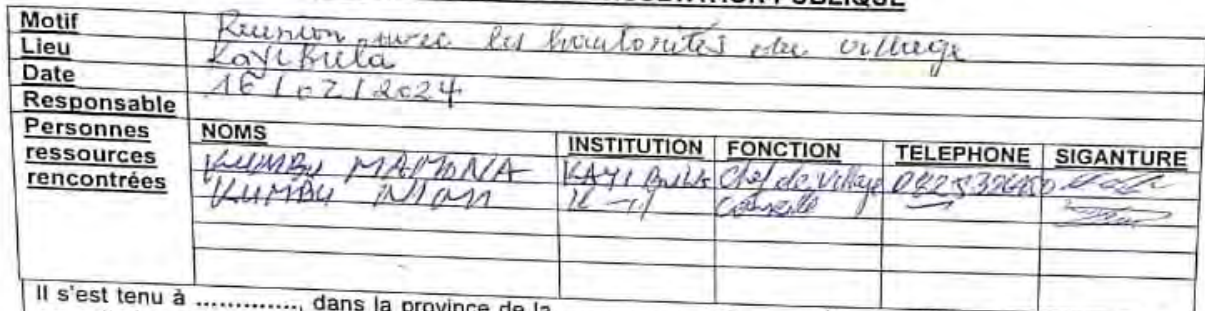 CONSULTATION PUBLIQUE
Motif Reunion avec les hautorités du village
Lieu Kayi Bula
Date 16/02/2024
Responsable
Personnes ressources rencontrées
NOMS INSTITUTION FONCTION TELEPHONE SIGANTURE
KUMBU MAMONA KAYI BULA Chef de village
KUMBU
Il s'est tenu à .............., dans la province de la